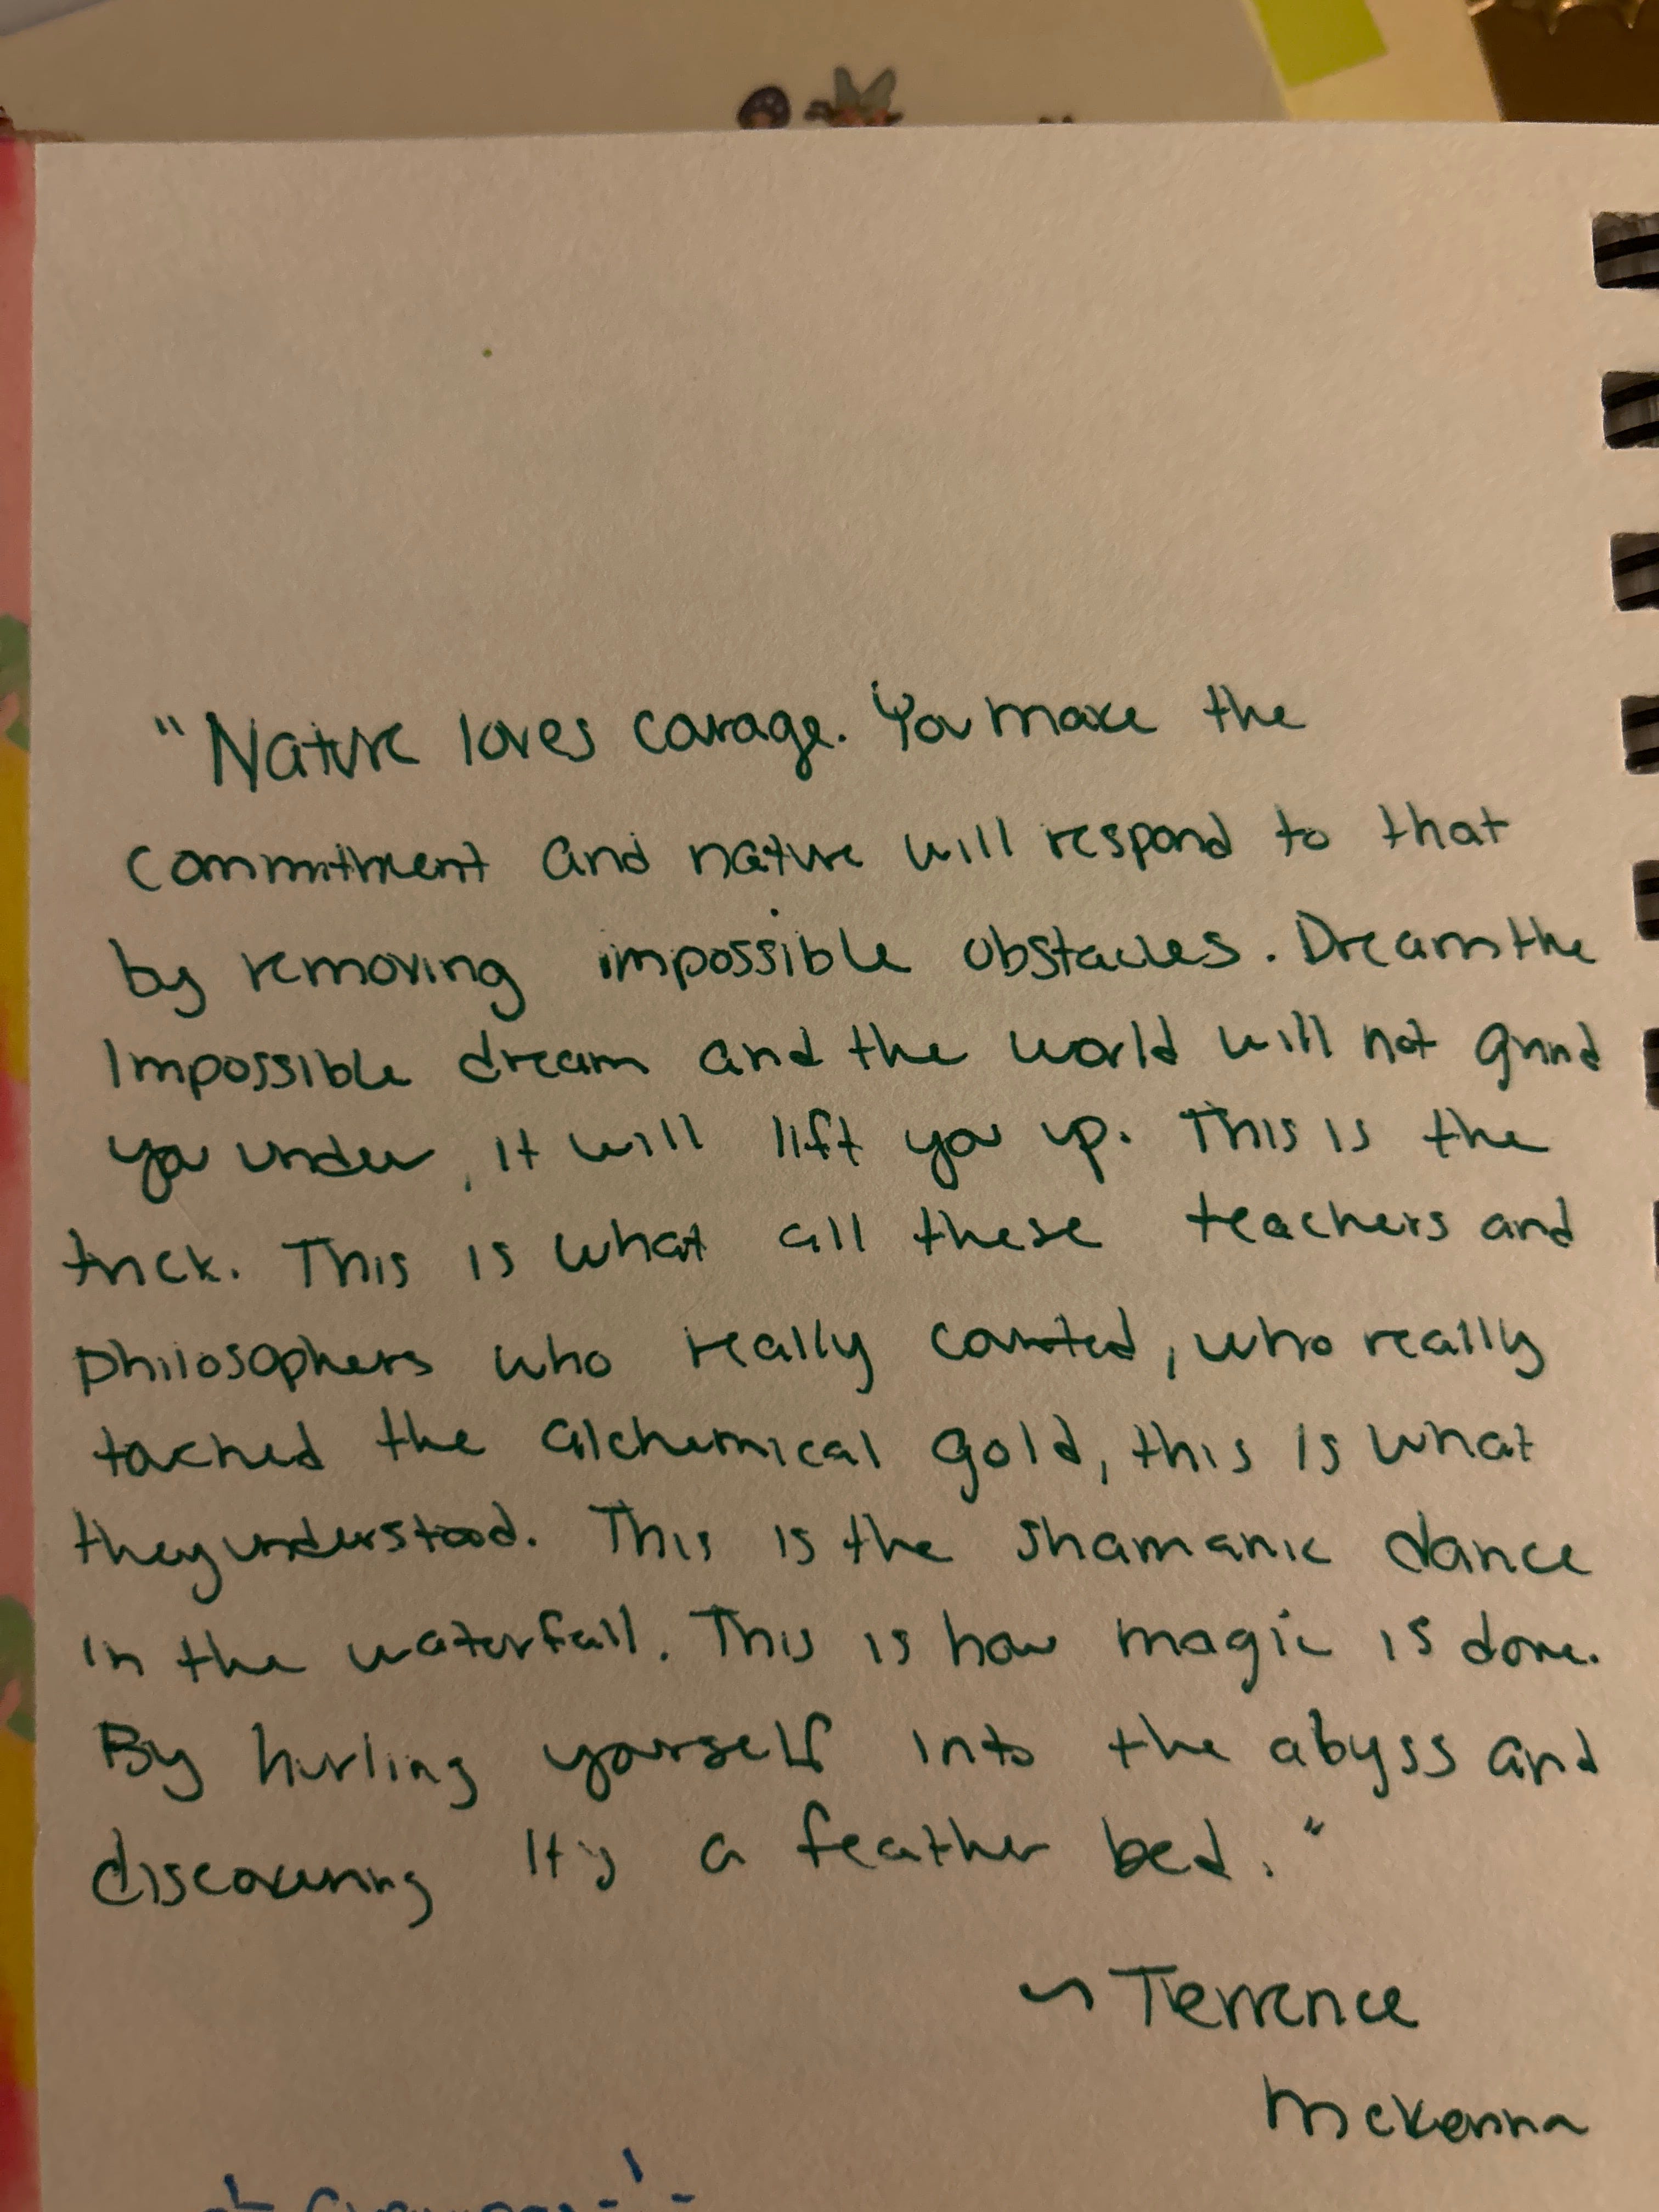 "Nature loves courage. You make the
commitment and nature will respond to that
by removing impossible obstacles. Dream the
Impossible dream and the world will not grind
you under, it will lift you up. This is the
trick. This is what all these teachers and
philosophers who really counted, who really
touched the alchemical gold, this is what
they understood. This is the shamanic dance
in the waterfall. This is how magic is done.
By hurling yourself into the abyss and
discovering it's a feather bed."
~ Terrence
McKenna